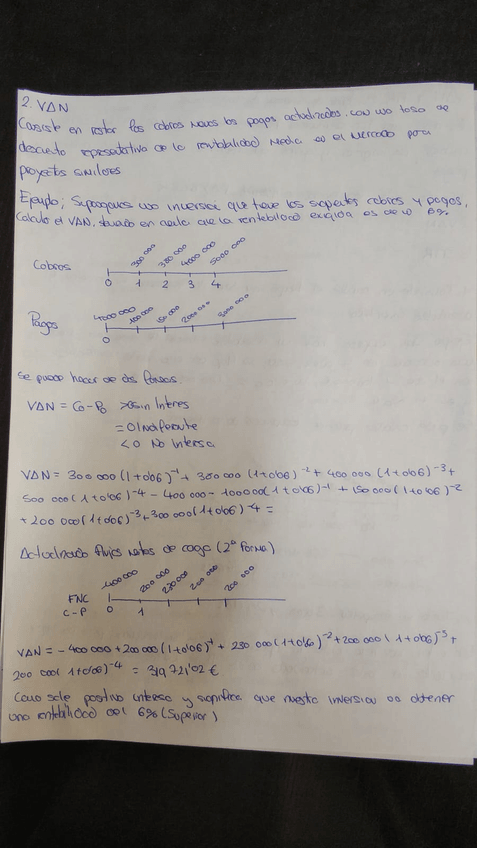 2. VAN
Consiste en restar los cobros menos los pagos actualizados. con una tasa de
descuento representativa de la rentabilidad media en el mercado para
proyectos similares
Ejemplo; Supongamos una inversión que tiene los siguientes cobros y pagos,
Calcula el VAN, teniendo en cuenta que la rentabilidad exigida es de un 6%
300 000 380 000 4000 000 5000 000
Cobros
0 1 2 3 4
4000000 100 000 150 000 2000 000 3000 000
Pagos
0
Se puede hacer de dos formas
VAN = Co - Po >0 sin Interes
= 0 Indiferente
< 0 No Interesa
VAN = 300 000 (1+0'06)⁻¹ + 380 000 (1+0'06)⁻² + 400 000 (1+0'06)⁻³ +
500 000 (1+0'06)⁻⁴ - 400 000 - 100 000 (1+0'06)⁻¹ + 150 000 (1+0'06)⁻²
+ 200 000 (1+0'06)⁻³ + 300 000 (1+0'06)⁻⁴ =
Actualizando flujos netos de caja (2ª Forma)
400 000 200 000 230 000 200 000 200 000
FNC 0 1
C-P
VAN = - 400 000 + 200 000 (1+0'06)⁻¹ + 230 000 (1+0'06)⁻² + 200 000 (1+0'06)⁻³ +
200 000 (1+0'06)⁻⁴ = 319 721'02 €
Como sale positivo interesa y significa que nuestra inversión va obtener
una rentabilidad del 6% (Superior)